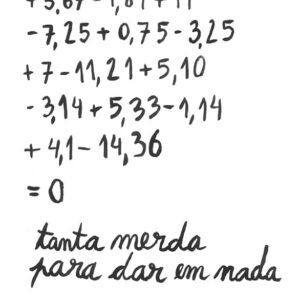 - 7,25 + 0,75 - 3,25
+ 7 - 11,21 + 5,10
- 3,14 + 5,33 - 1,14
+ 4,1 - 14,36
= 0
tanta merda
para dar em nada